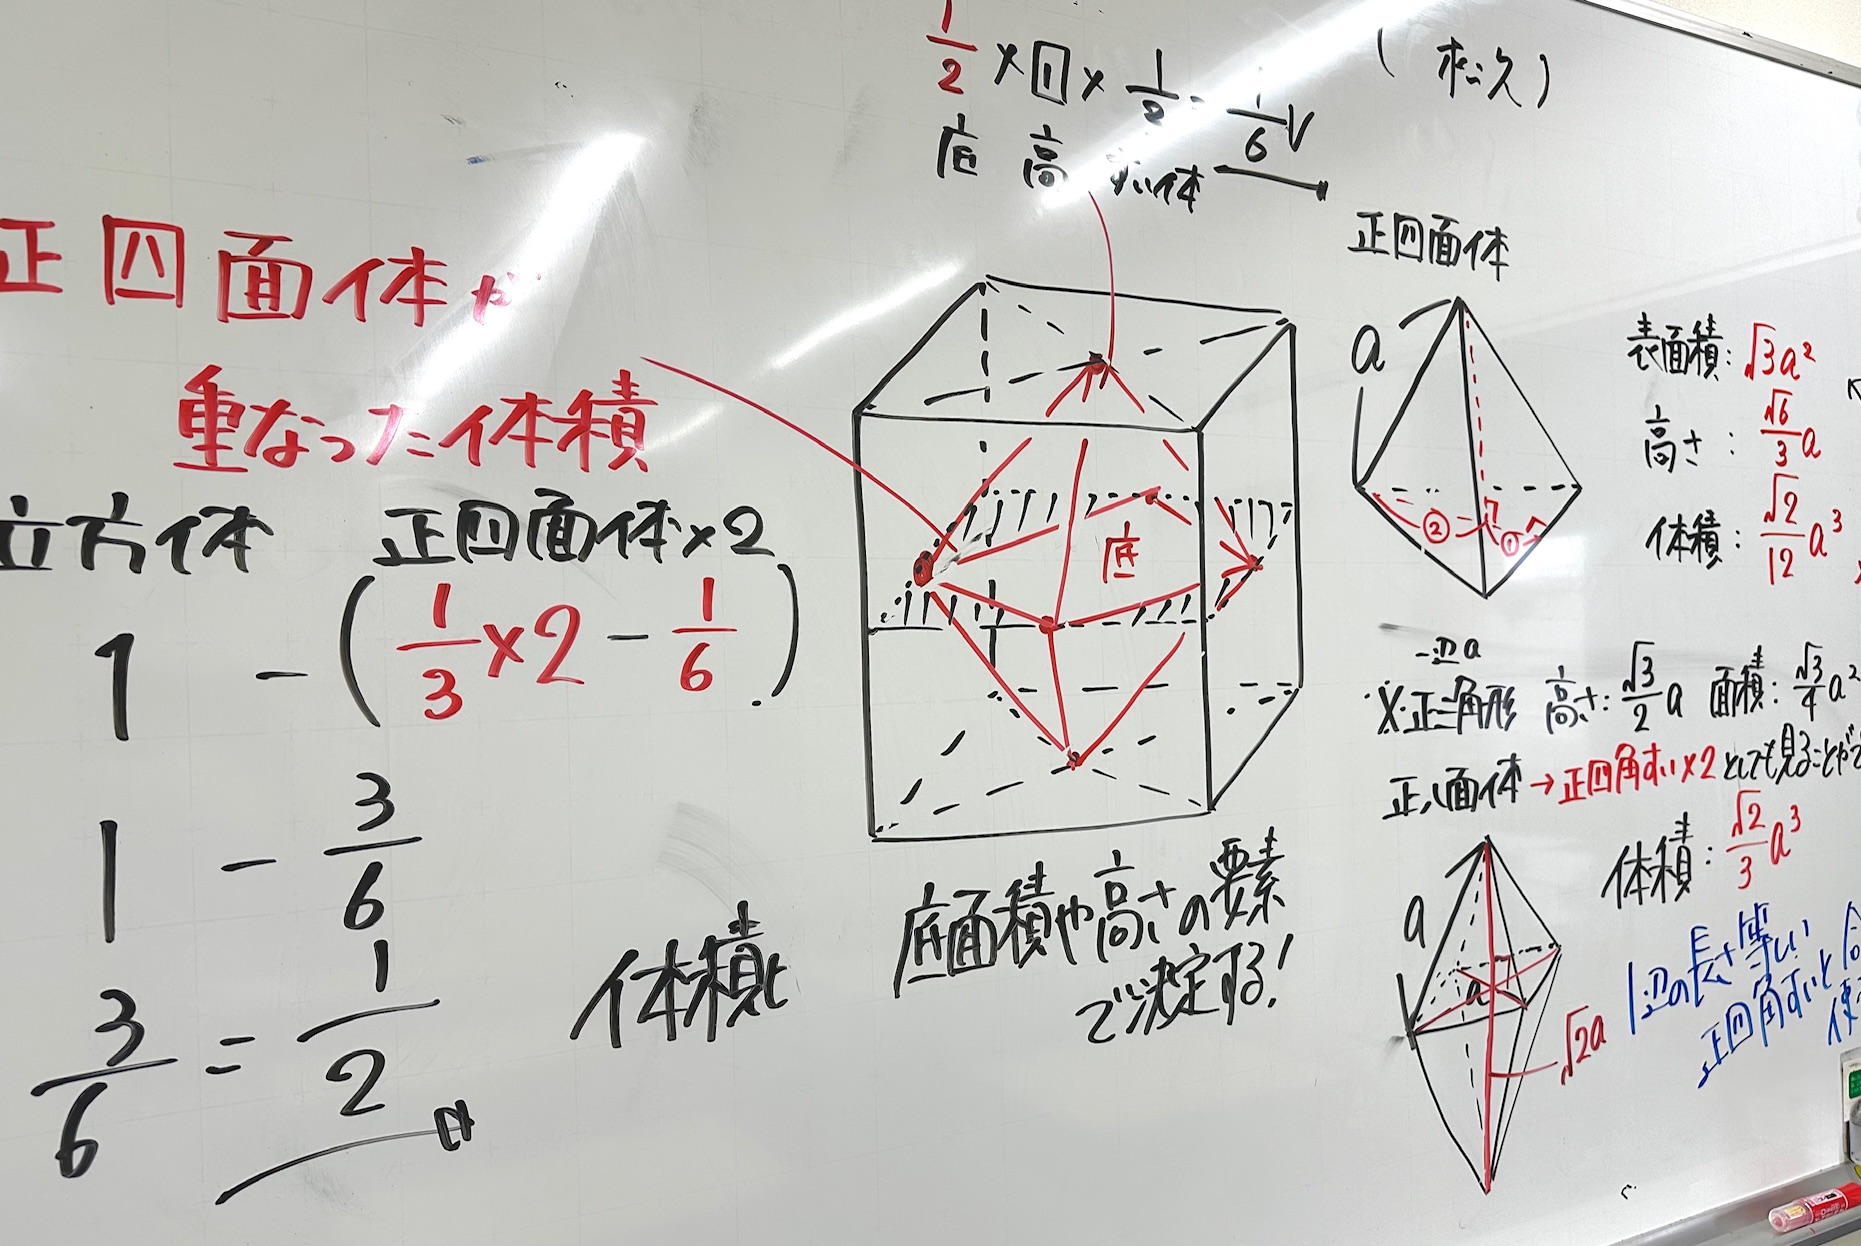 1/2 × 1 × 1/3 = 1/6 V
底 高 すい体
(松久)
正四面体が
重なった体積
立方体 正四面体×2
1 - (1/3 × 2 - 1/6)
1 - 3/6
3/6 = 1/2
体積と
底
底面積や高さの要素
で決定する!
正四面体
a
② ①
表面積: √3a²
高さ: √6/3 a
体積: √2/12 a³
一辺a
※正三角形 高さ: √3/2 a 面積: √3/4 a²
正八面体→正四角すい×2としても見ることがで
体積: √2/3 a³
a
a
√2a
1辺の長さ等しい
正四角すいと合
使